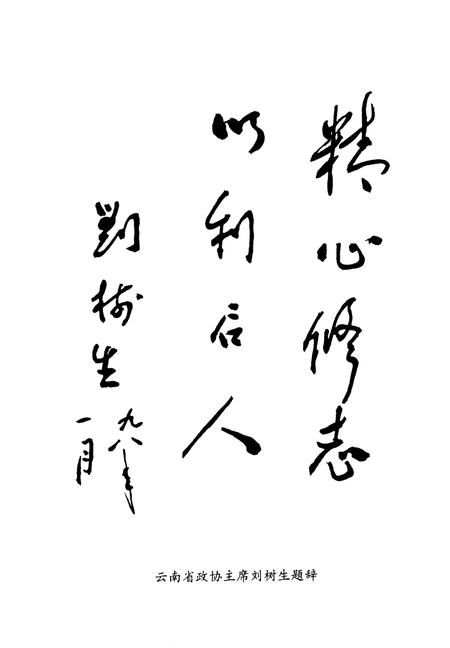 精心修志
以利后人
劉树生
九八年
一月
云南省政协主席刘树生题辞